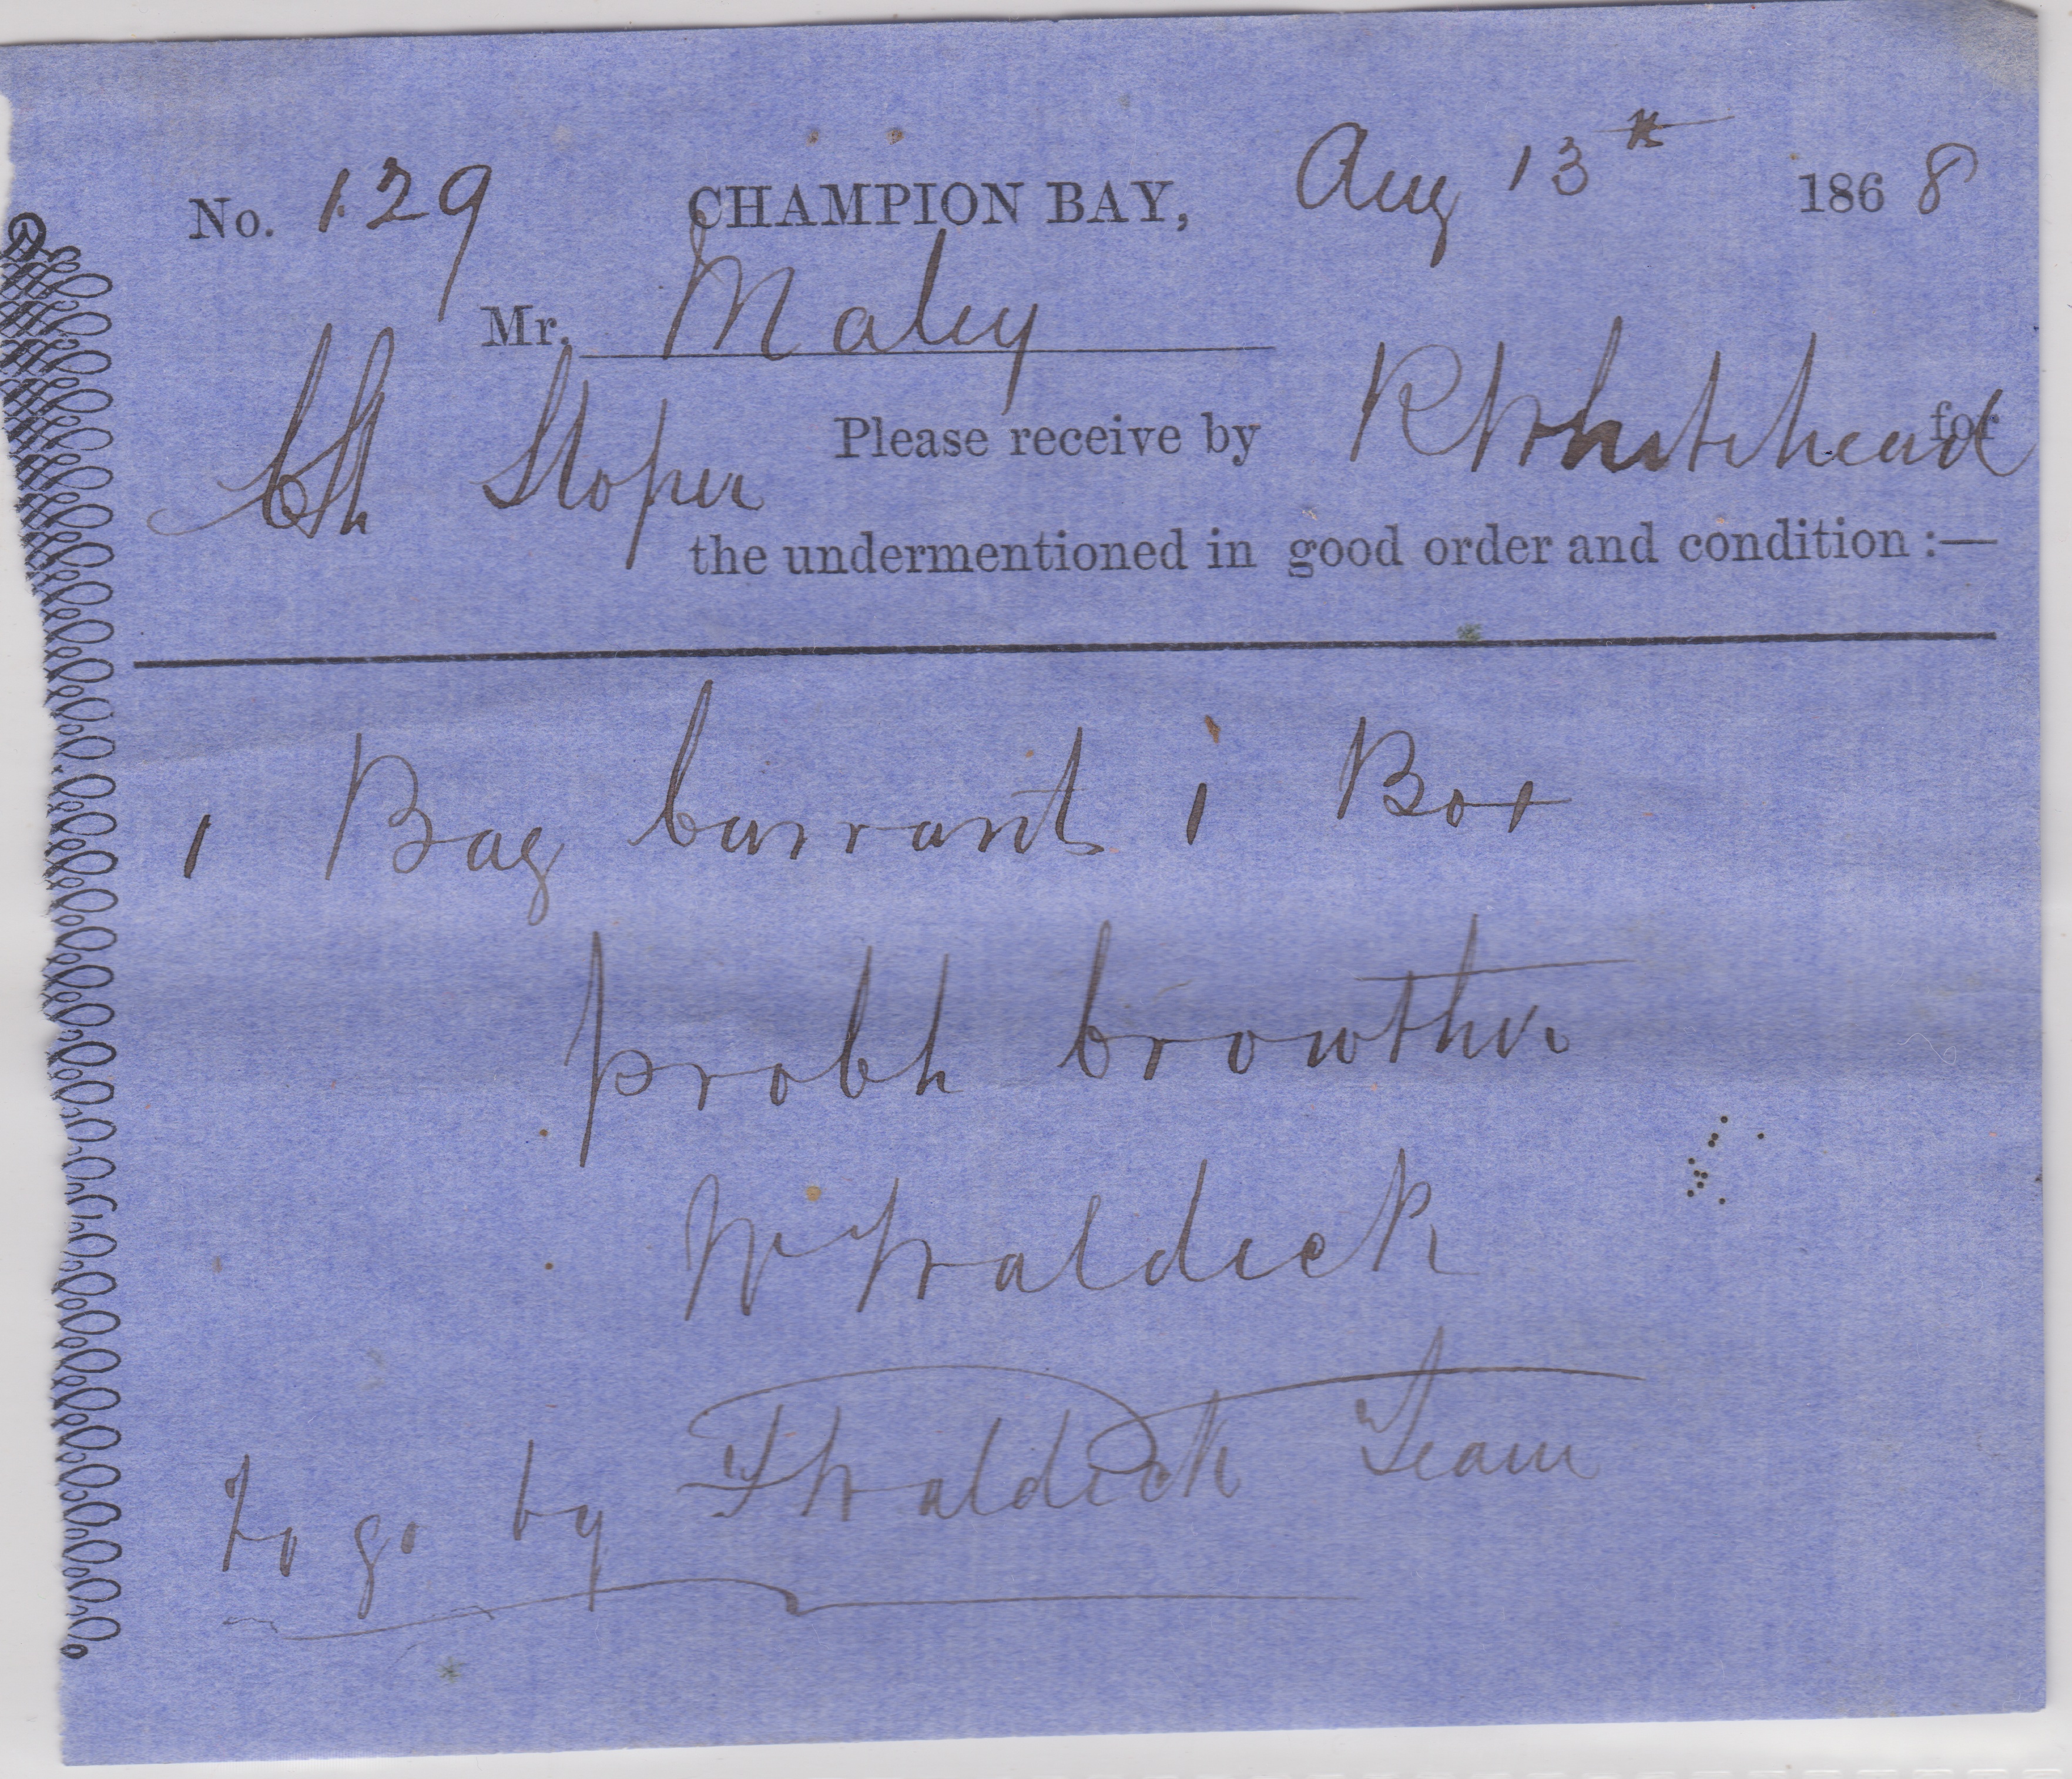 No. 129 CHAMPION BAY, Aug 13th 1868
Mr. Maley
Please receive by R Whitehead for
Ch Sloper
the undermentioned in good order and condition :—
1 Bag Currants 1 Box
Crowther
W Waldeck
To go by F Waldeck Team